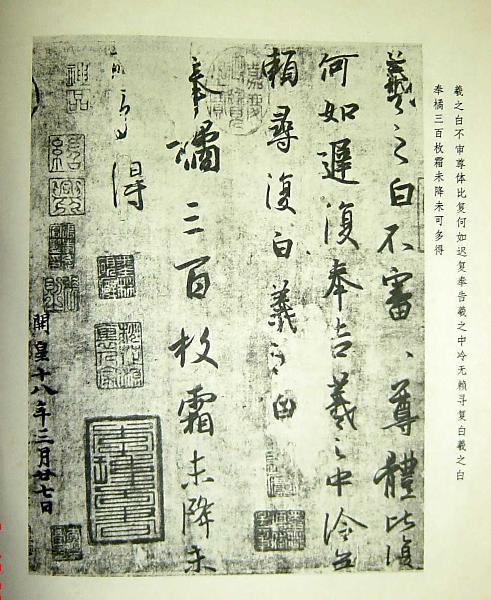 羲之白不审尊体比复何如迟复奉告羲之中冷无赖寻复白羲之白
奉橘三百枚霜未降未可多得
羲之白不審尊體比復
何如遲復奉告羲之中冷無
賴尋復白羲之白
奉橘三百枚霜未降未
可多得
神品
紹興
開皇十八年三月廿七日